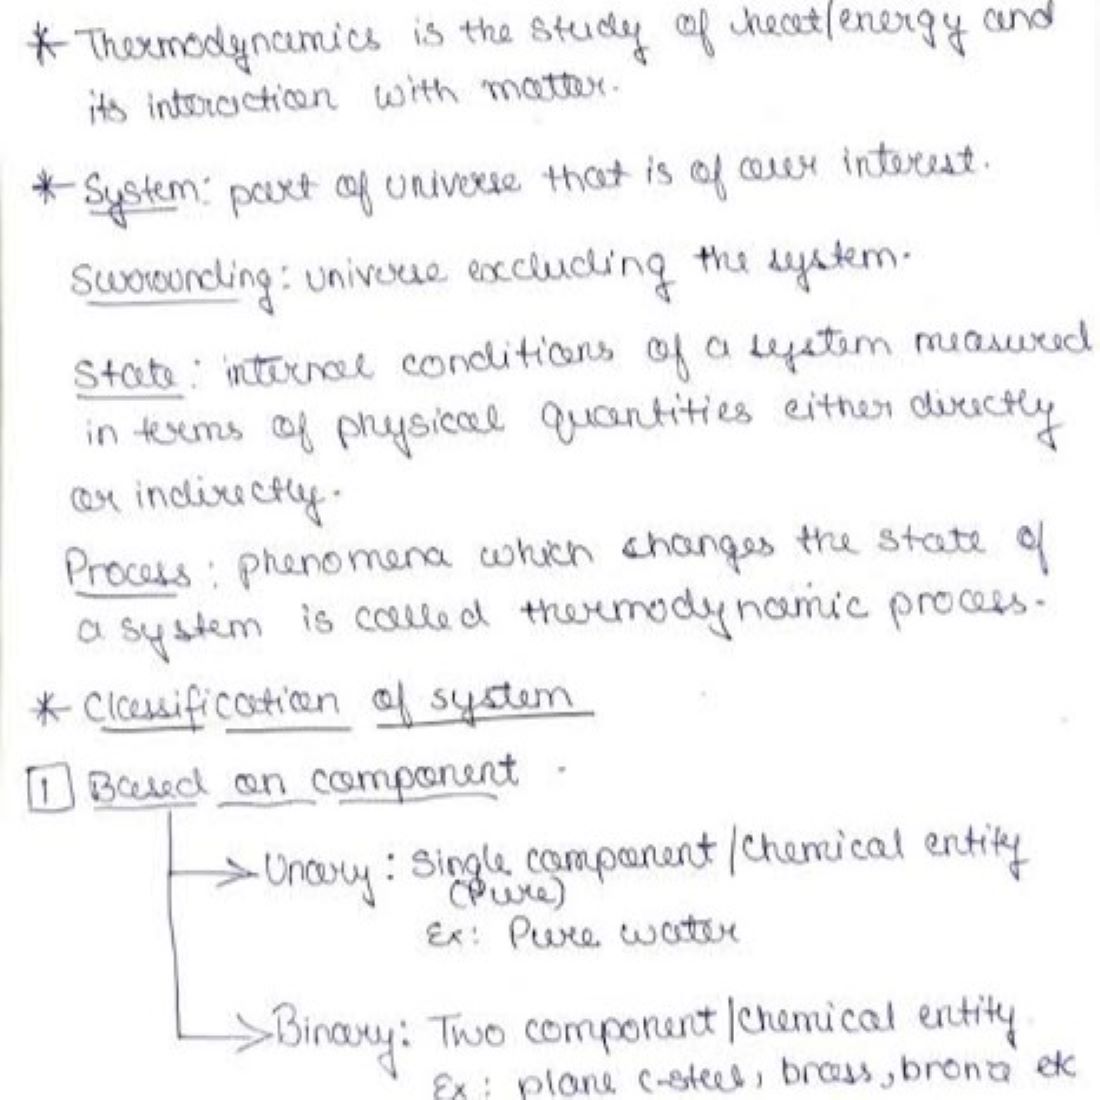 * Thermodynamics is the study of heat/energy and
its interaction with matter.
* System: part of universe that is of our interest.
Surrounding: universe excluding the system.
State: internal conditions of a system measured
in terms of physical quantities either directly
or indirectly.
Process: phenomena which changes the state of
a system is called thermodynamic process.
* Classification of system
1 Based on component
Unary: Single component/chemical entity
(Pure)
Ex: Pure water
Binary: Two component/chemical entity
Ex: plane C-steel, brass, bronz etc